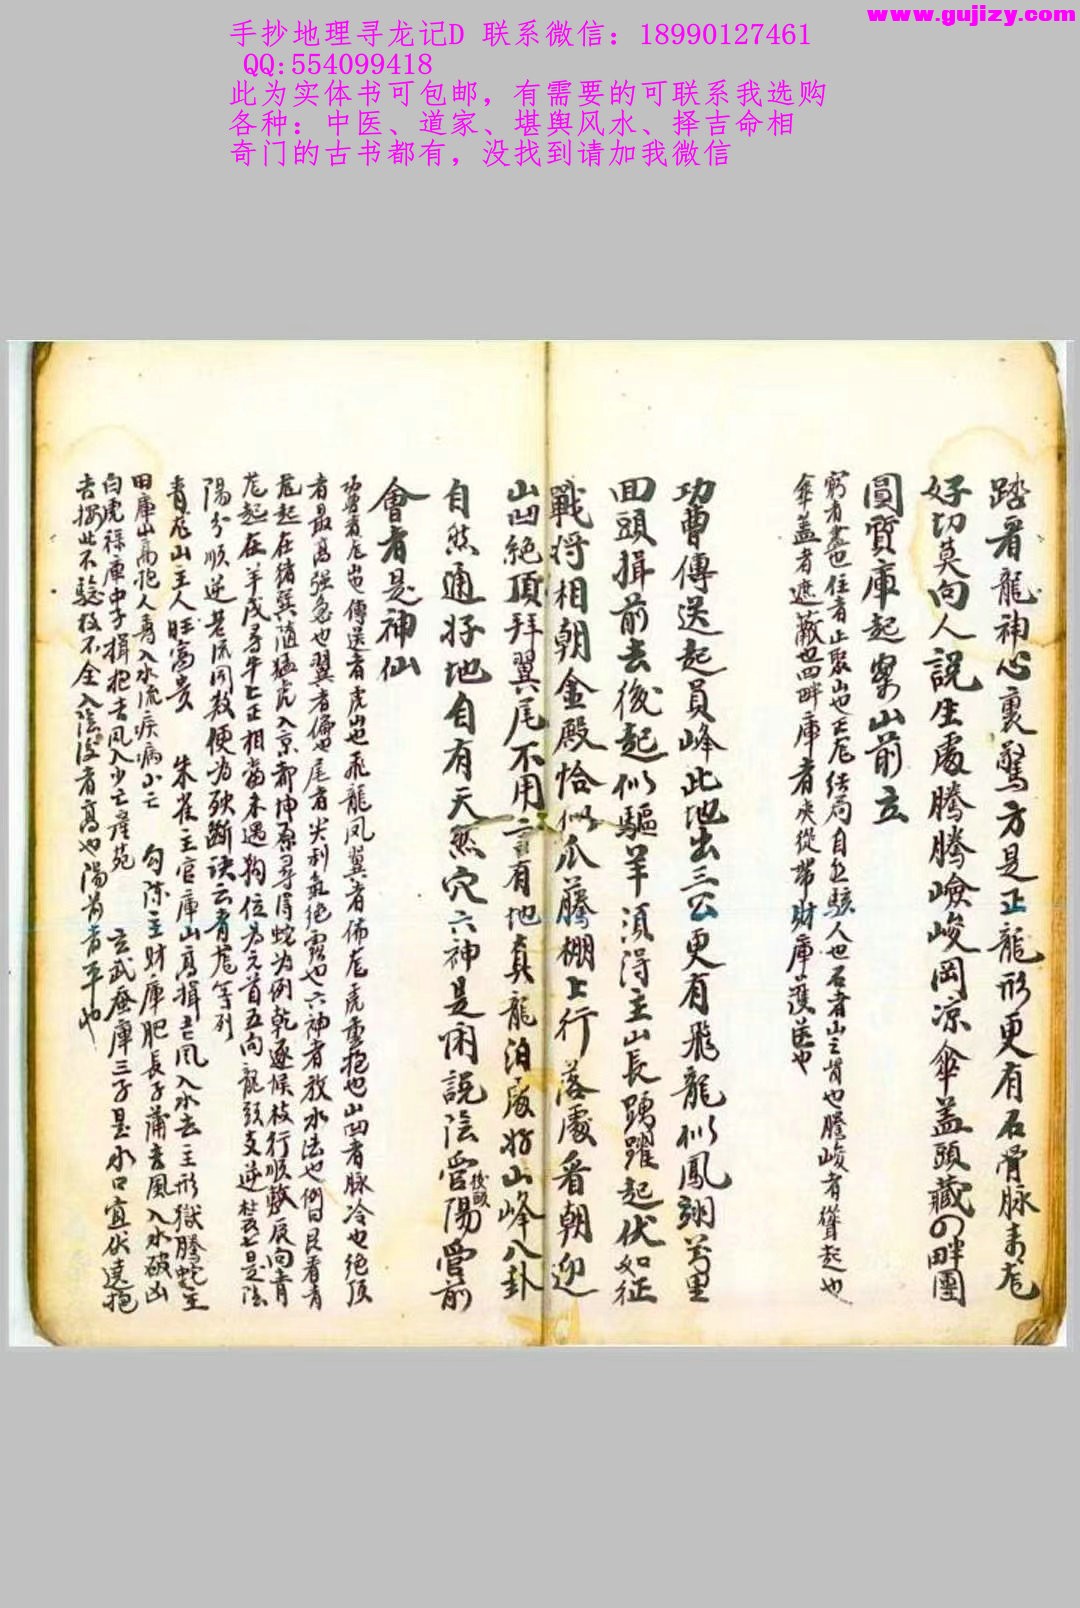 www.gujizy.com
手抄地理寻龙记D 联系微信：18990127461
QQ:554099418
此为实体书可包邮，有需要的可联系我选购
各种：中医、道家、堪舆风水、择吉命相
奇门的古书都有，没找到请加我微信
踏看龍神心裏驚方是正龍形更有石骨脉来龙
好切莫向人說生處騰騰嶮峻岡凉傘盖頭藏四畔團
圓質庫起案山前立
窮者盡也住者止聚山也正龙结局自然驗人也石者山之骨也騰峻者聳起也
傘盖者遮蔽也四畔庫者夹從帶財庫護送也
功曹傳送起員峰此地出三公更有飛龍似鳳翔萬里
回頭揖前去後起似驅羊湏淂主山長踴躍起伏如征
戰将相朝金殿恰似瓜藤棚上行落處看朝迎
山凹絶頂拜翼尾不用言有地真龍泊處好山峰八卦
自然通好地自有天然穴六神是闲說陰管陽管前後頭
會者是神仙
功曹者龙山也傳送者虎山也飛龍凤翼者佈龙虎重抱也山凹者脉冷也絶頂
者最高强急也翼者偏也尾者尖利氣绝露也六神者放水法也例曰艮看青
龙起在猪巽随猛虎入京都坤原寻得蛇为例乾逐候枝行順數辰向青
龙起在羊戌寻牛上正相當未遇狗位为元首五向龍頭支逆
陽分順逆若流同数便为殃斷诀云青龙等列
青龙山主人旺富贵 朱雀主官庫山高揖去凤入水去主形獄騰蛇主
田庫山高抱人壽入水流疾病小亡 勾陈主財庫肥長子蒲去風入水破凶
白虎禄庫中子揖抱去风入少亡產苑 玄武蚕庫三子是水口宜伏遶抱
去揚此不驗枝不全入陰後者高也陽前者平也